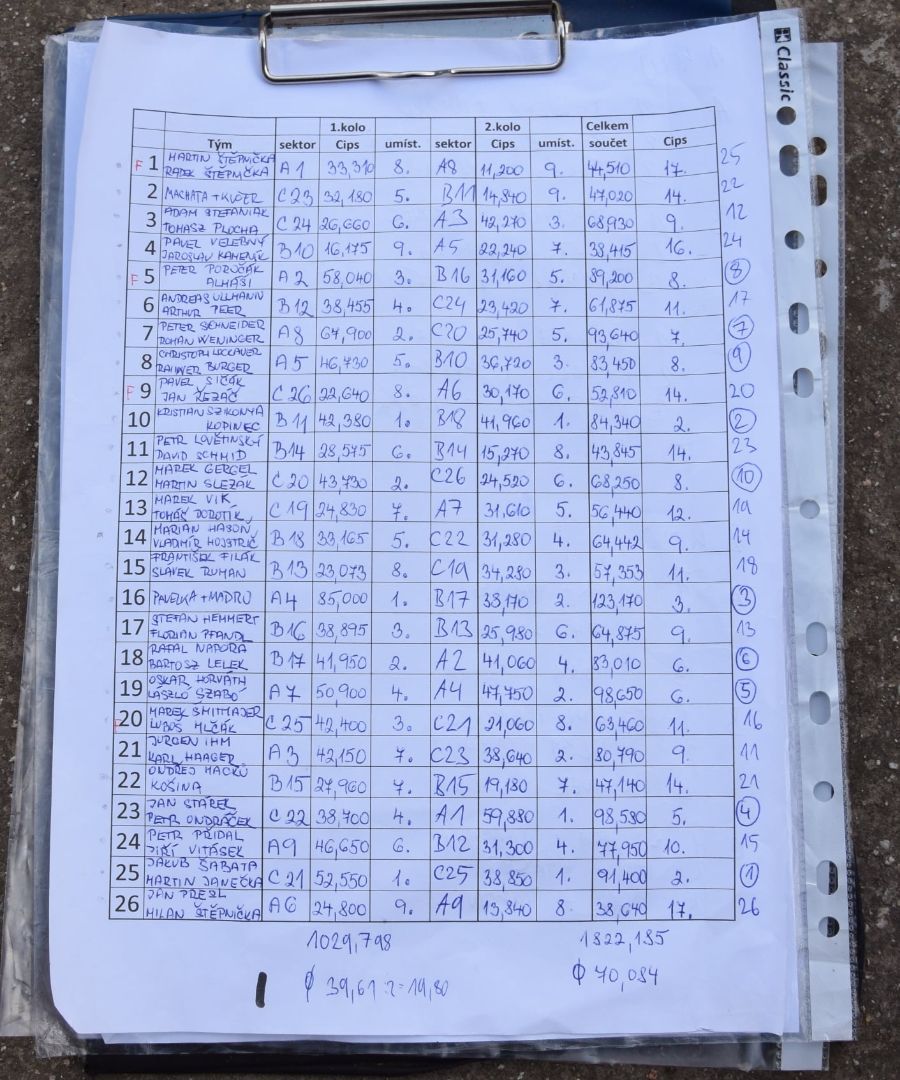 Classic
1.kolo 2.kolo Celkem
Tým sektor Cips umíst. sektor Cips umíst. součet Cips
F 1 MARTIN ŠTĚPNIČKA A1 33,310 8. A8 11,200 9. 44,510 17. 25
RADEK ŠTĚPNIČKA
2 MACHATA + KUČER C23 32,180 5. B11 14,840 9. 47,020 14. 22
3 ADAM STEFANIAK C24 26,660 6. A3 42,270 3. 68,930 9. 12
TOMASZ PLOCHA
4 PAVEL VELEBNÝ B10 16,175 9. A5 22,240 7. 38,415 16. 24
JAROSLAV KAMENÍK
F 5 PETER PORUČÁK A2 58,040 3. B16 31,160 5. 89,200 8. 8
ALHAŠI
6 ANDREAS ULLMANN B12 38,455 4. C24 23,420 7. 61,875 11. 17
ARTHUR PEER
7 PETER SCHNEIDER A8 67,900 2. C20 25,740 5. 93,640 7. 7
ROMAN WENINGER
8 CHRISTOPH A5 46,730 5. B10 36,720 3. 83,450 8. 9
RAINER BURGER
F 9 PAVEL SIČÁK C26 22,640 8. A6 30,170 6. 52,810 14. 20
JAN ŘEZÁČ
10 KRISTIAN SZIKONYA B11 42,380 1. B18 41,960 1. 84,340 2. 2
KOPINEC
11 PETR LOVĚTINSKÝ B14 28,575 6. B14 15,270 8. 43,845 14. 23
DAVID SCHMID
12 MAREK GERGEL C20 43,730 2. C26 24,520 6. 68,250 8. 10
MARTIN SLEZÁK
13 MAREK VIK C19 24,830 7. A7 31,610 5. 56,440 12. 19
TOMÁŠ DOROTÍK
14 MARIAN HASOŇ B18 33,165 5. C22 31,280 4. 64,442 9. 14
VLADIMÍR
15 FRANTIŠEK FILÁK B13 23,073 8. C19 34,280 3. 57,353 11. 18
SLAVEK RUMAN
16 PAVELKA + MADRO A4 85,000 1. B17 38,170 2. 123,170 3. 3
17 STEFAN HEMMERT B16 38,895 3. B13 25,980 6. 64,875 9. 13
FLORIAN PFANDL
18 RAFAL NAPORA B17 41,950 2. A2 41,060 4. 83,010 6. 6
BARTOSZ LELEK
19 OSKAR HORVÁTH A7 50,900 4. A4 47,750 2. 98,650 6. 5
LÁSZLÓ SZABÓ
F 20 MAREK SMITMAJER C25 42,400 3. C21 21,060 8. 63,460 11. 16
LUBOŠ MLČÁK
21 JURGEN IHM A3 42,150 7. C23 38,640 2. 80,790 9. 11
KARL HAAGER
22 ONDŘEJ MACKŮ B15 27,960 7. B15 19,180 7. 47,140 14. 21
KOŠINA
23 JAN STÁREK C22 38,700 4. A1 59,880 1. 98,580 5. 4
PETR ONDRÁČEK
24 PETR PŘIDAL A9 46,650 6. B12 31,300 4. 77,950 10. 15
JIŘÍ VITÁSEK
25 JAKUB ŠABATA C21 52,550 1. C25 38,850 1. 91,400 2. 1
MARTIN JANEČKA
26 JAN PRESL A6 24,800 9. A9 13,840 8. 38,640 17. 26
MILAN ŠTĚPNIČKA
1029,798 1822,185
ϕ 39,61 :2=19,80 ϕ 70,084